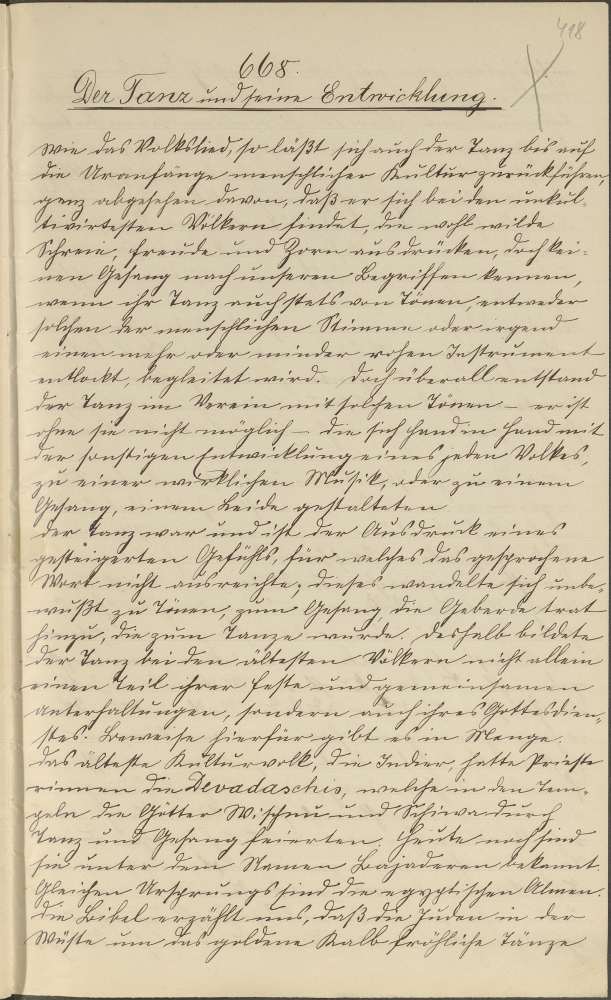 418
668.
Der Tanz und seine Entwicklung.
Wie das Volkslied, so läßt sich auch der Tanz bis auf
die Uranfänge menschlicher Kultur zurückführen,
ganz abgesehen davon, daß er sich bei den unkul-
tivirtesten Völkern findet, die wohl wilde
Schreie, Freude und Zorn ausdrücken, doch kei-
nen Gesang nach unseren Begriffen kennen,
wenn ihr Tanz auch stets von Tönen, entweder
solchen der menschlichen Stimme oder irgend
einem mehr oder minder rohen Instrument
entlockt, begleitet wird. Doch überall entstand
der Tanz im Verein mit solchen Tönen – er ist
ohne sie nicht möglich – die sich Hand in Hand mit
der sonstigen Entwicklung eines jeden Volkes,
zu einer wirklichen Musik, oder zu einem
Gesang, einem Leide gestalteten
Der Tanz war und ist der Ausdruck eines
gesteigerten Gefühls, für welches das gesprochene
Wort nicht ausreichte; dieses wandelte sich unbe-
wußt zu Tönen, zum Gesang, die Geberde trat
hinzu, die zum Tanze wurde. Deshalb bildete
der Tanz bei den ältesten Völkern nicht allein
einen Teil ihrer Feste und gemeinsamen
Unterhaltungen, sondern auch ihres Gottesdien-
stes. Beweise hierfür gibt es in Menge.
Das älteste Kulturvolk, die Indier, hatte Prieste
rinnen die Devadaschis, welche in den Tem-
peln die Götter Wischnu und Schiwa durch
Tanz und Gesang feierten. Heute noch sind
sie unter dem Namen Bajaderen bekannt.
Gleichen Ursprungs sind die egyptischen Almen.
Die Bibel erzählt uns, daß die Juden in der
Wüste um das goldene Kalb fröhliche Tänze